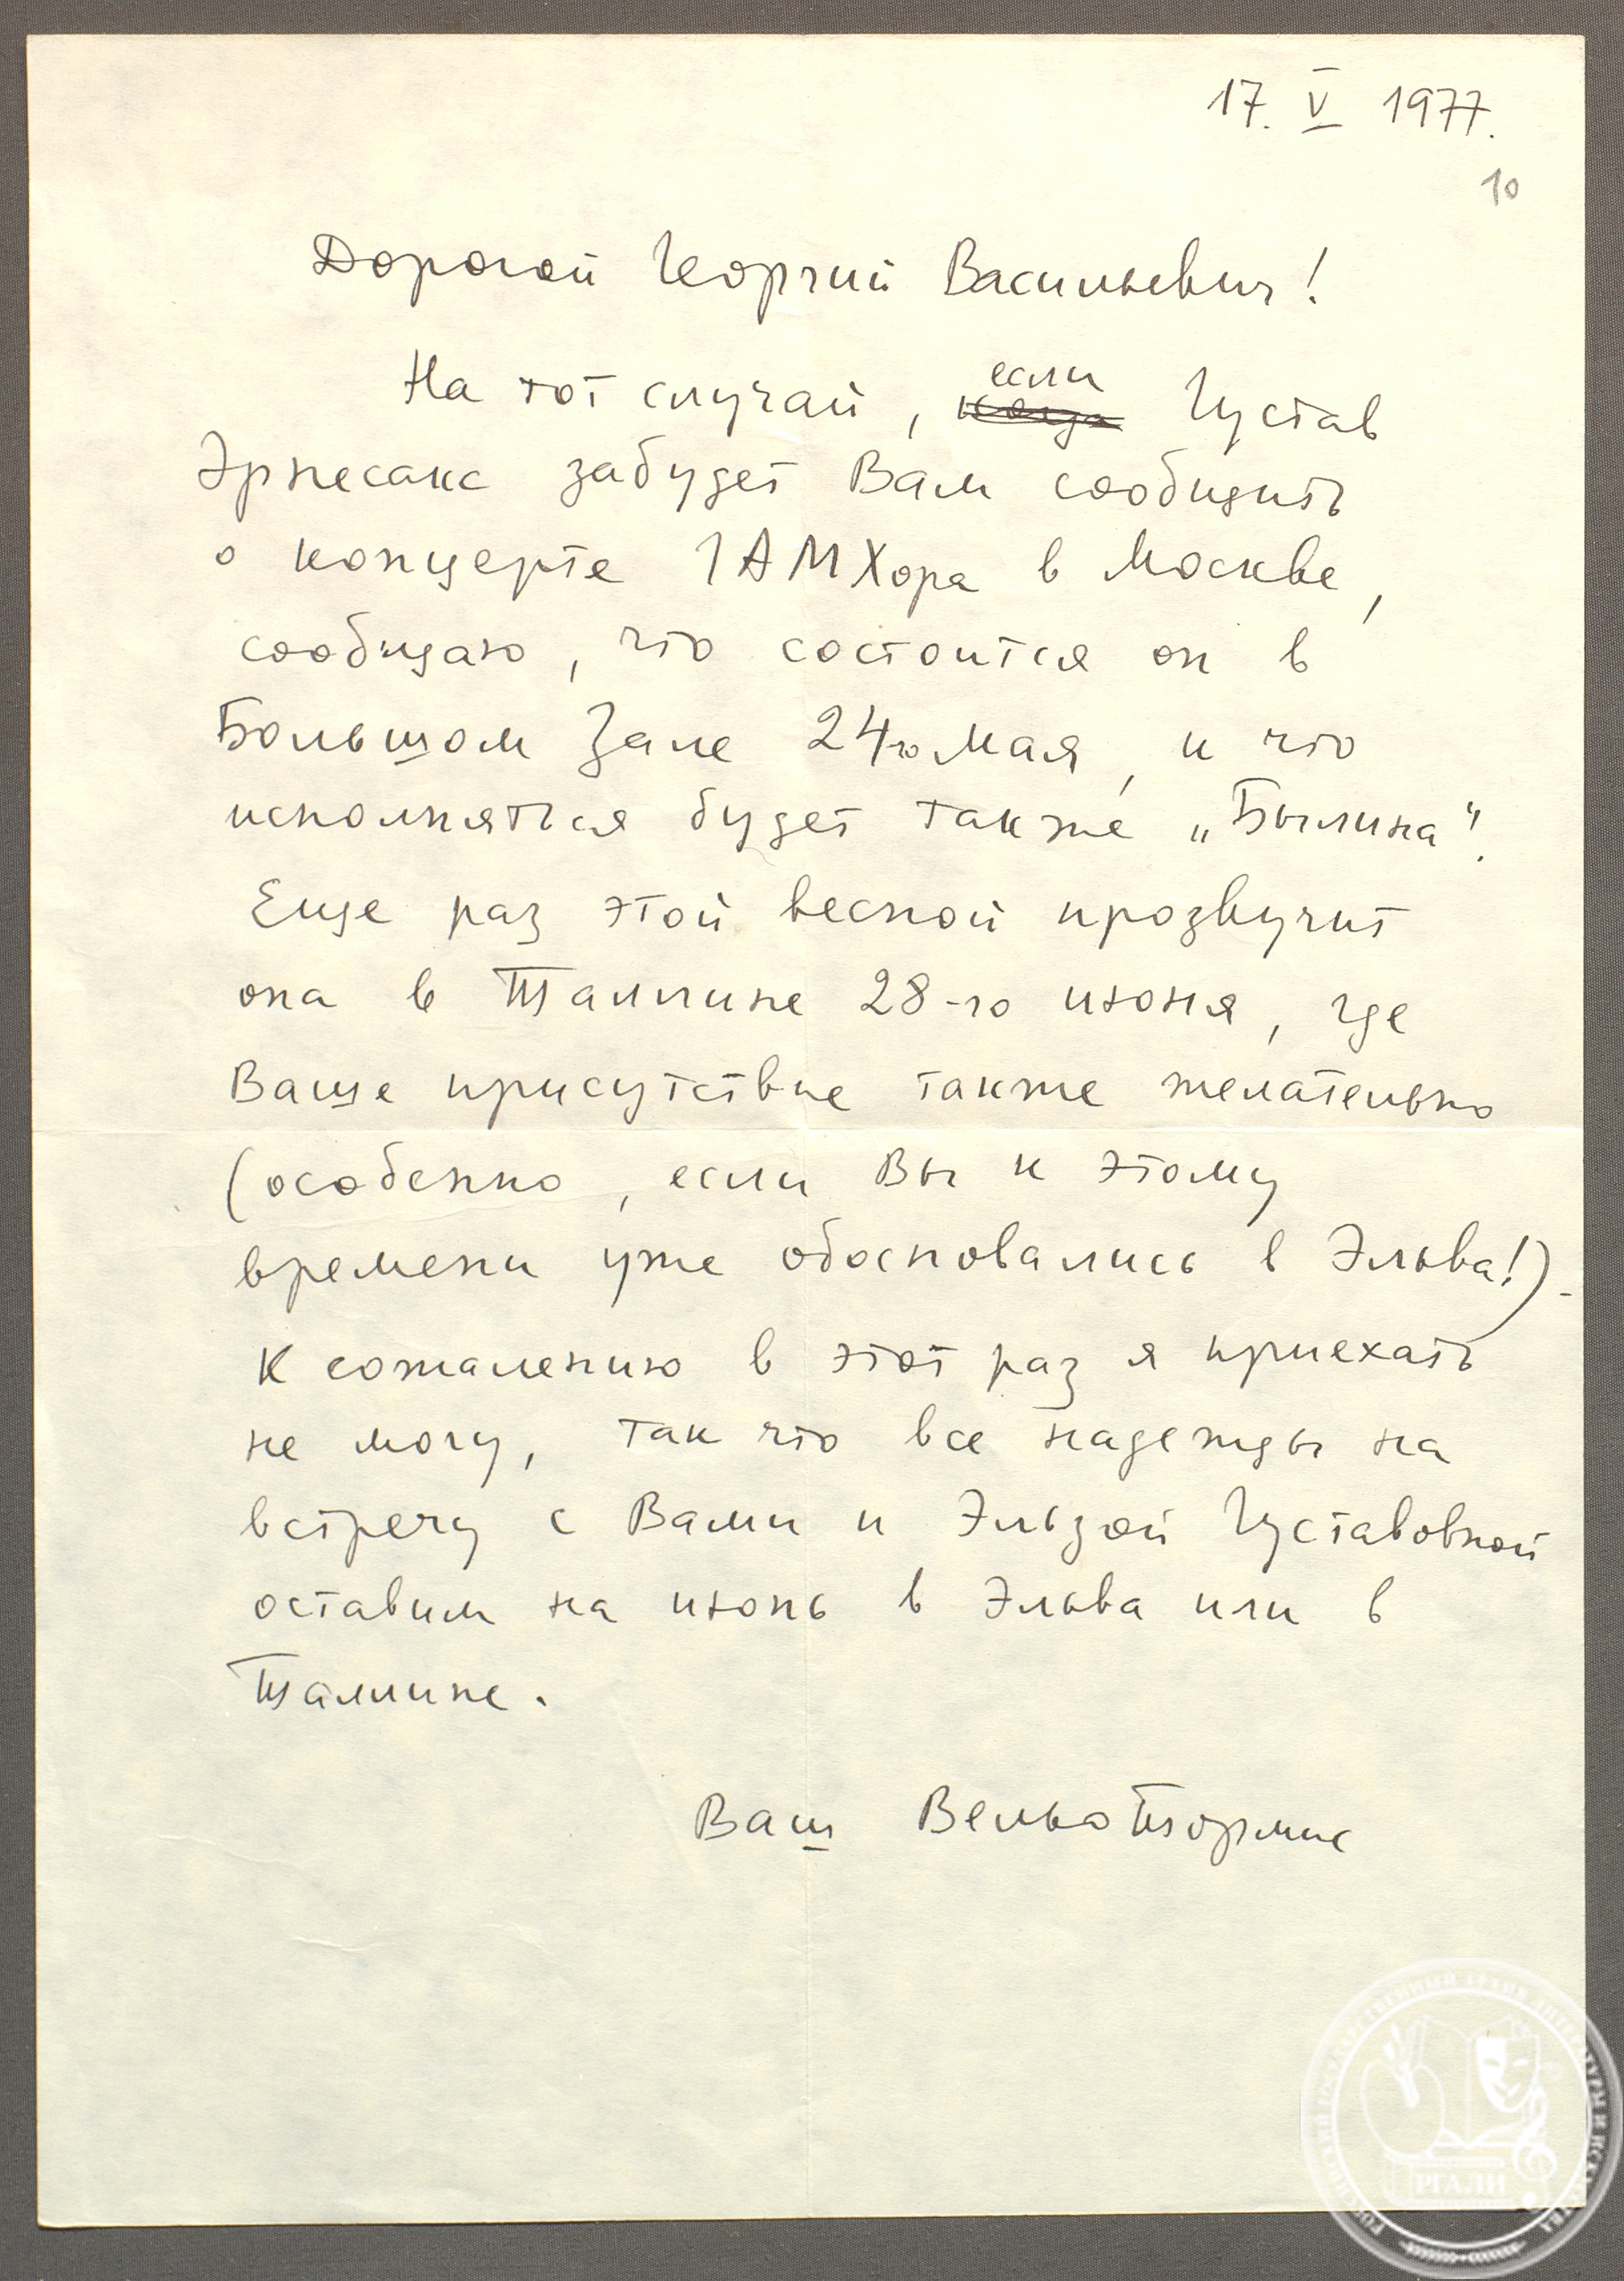 17. V 1977.
10
Дорогой Георгий Васильевич!
если
На тот случай, когда Густав
Эрнесакс забудет Вам сообщить
о концерте ГАМХора в Москве,
сообщаю, что состоится он в
Большом Зале 24го мая, и что
исполняться будет также „Былина“.
Еще раз этой весной прозвучит
она в Таллине 28-го июня, где
Ваше присутствие также желательно
(особенно, если Вы к этому
времени уже обосновались в Эльва!).
К сожалению в этот раз я приехать
не могу, так что все надежды на
встречу с Вами и Эльзой Густавовной
оставим на июнь в Эльва или в
Таллине.
Ваш Вельо Тормис
РГАЛИ